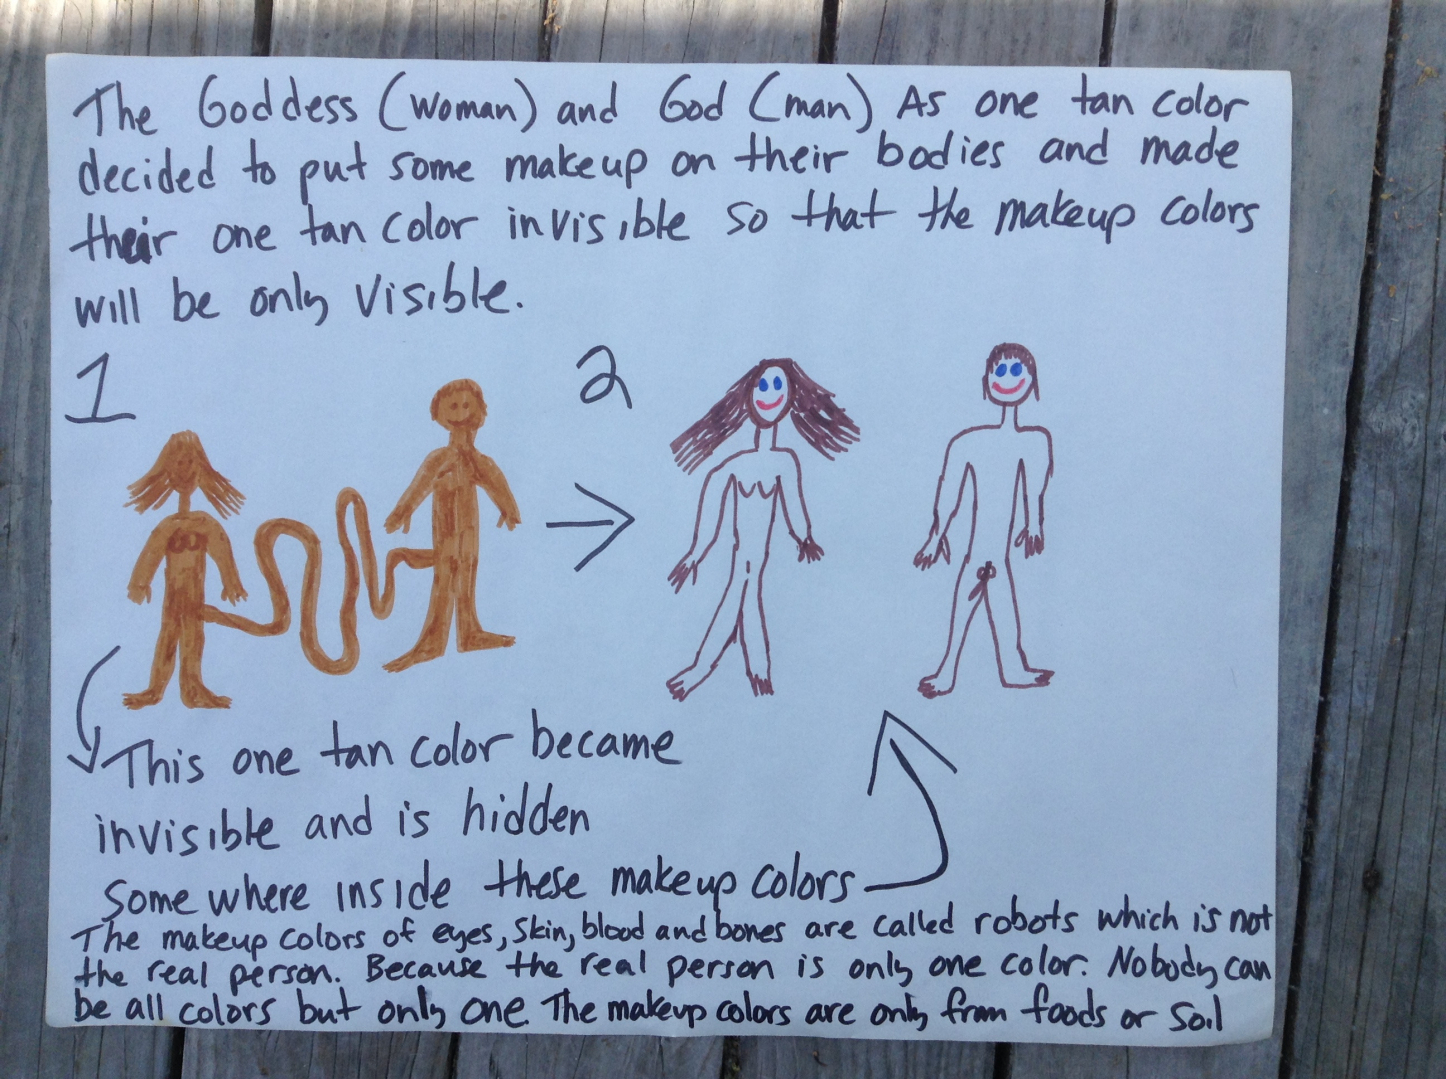 The Goddess (woman) and God (man) As one tan color
decided to put some makeup on their bodies and made
their one tan color invisible so that the makeup colors
will be only visible.
1
2
This one tan color became
invisible and is hidden
some where inside these makeup colors
The makeup colors of eyes, skin, blood and bones are called robots which is not
the real person. Because the real person is only one color. Nobody can
be all colors but only one. The makeup colors are only from foods or soil